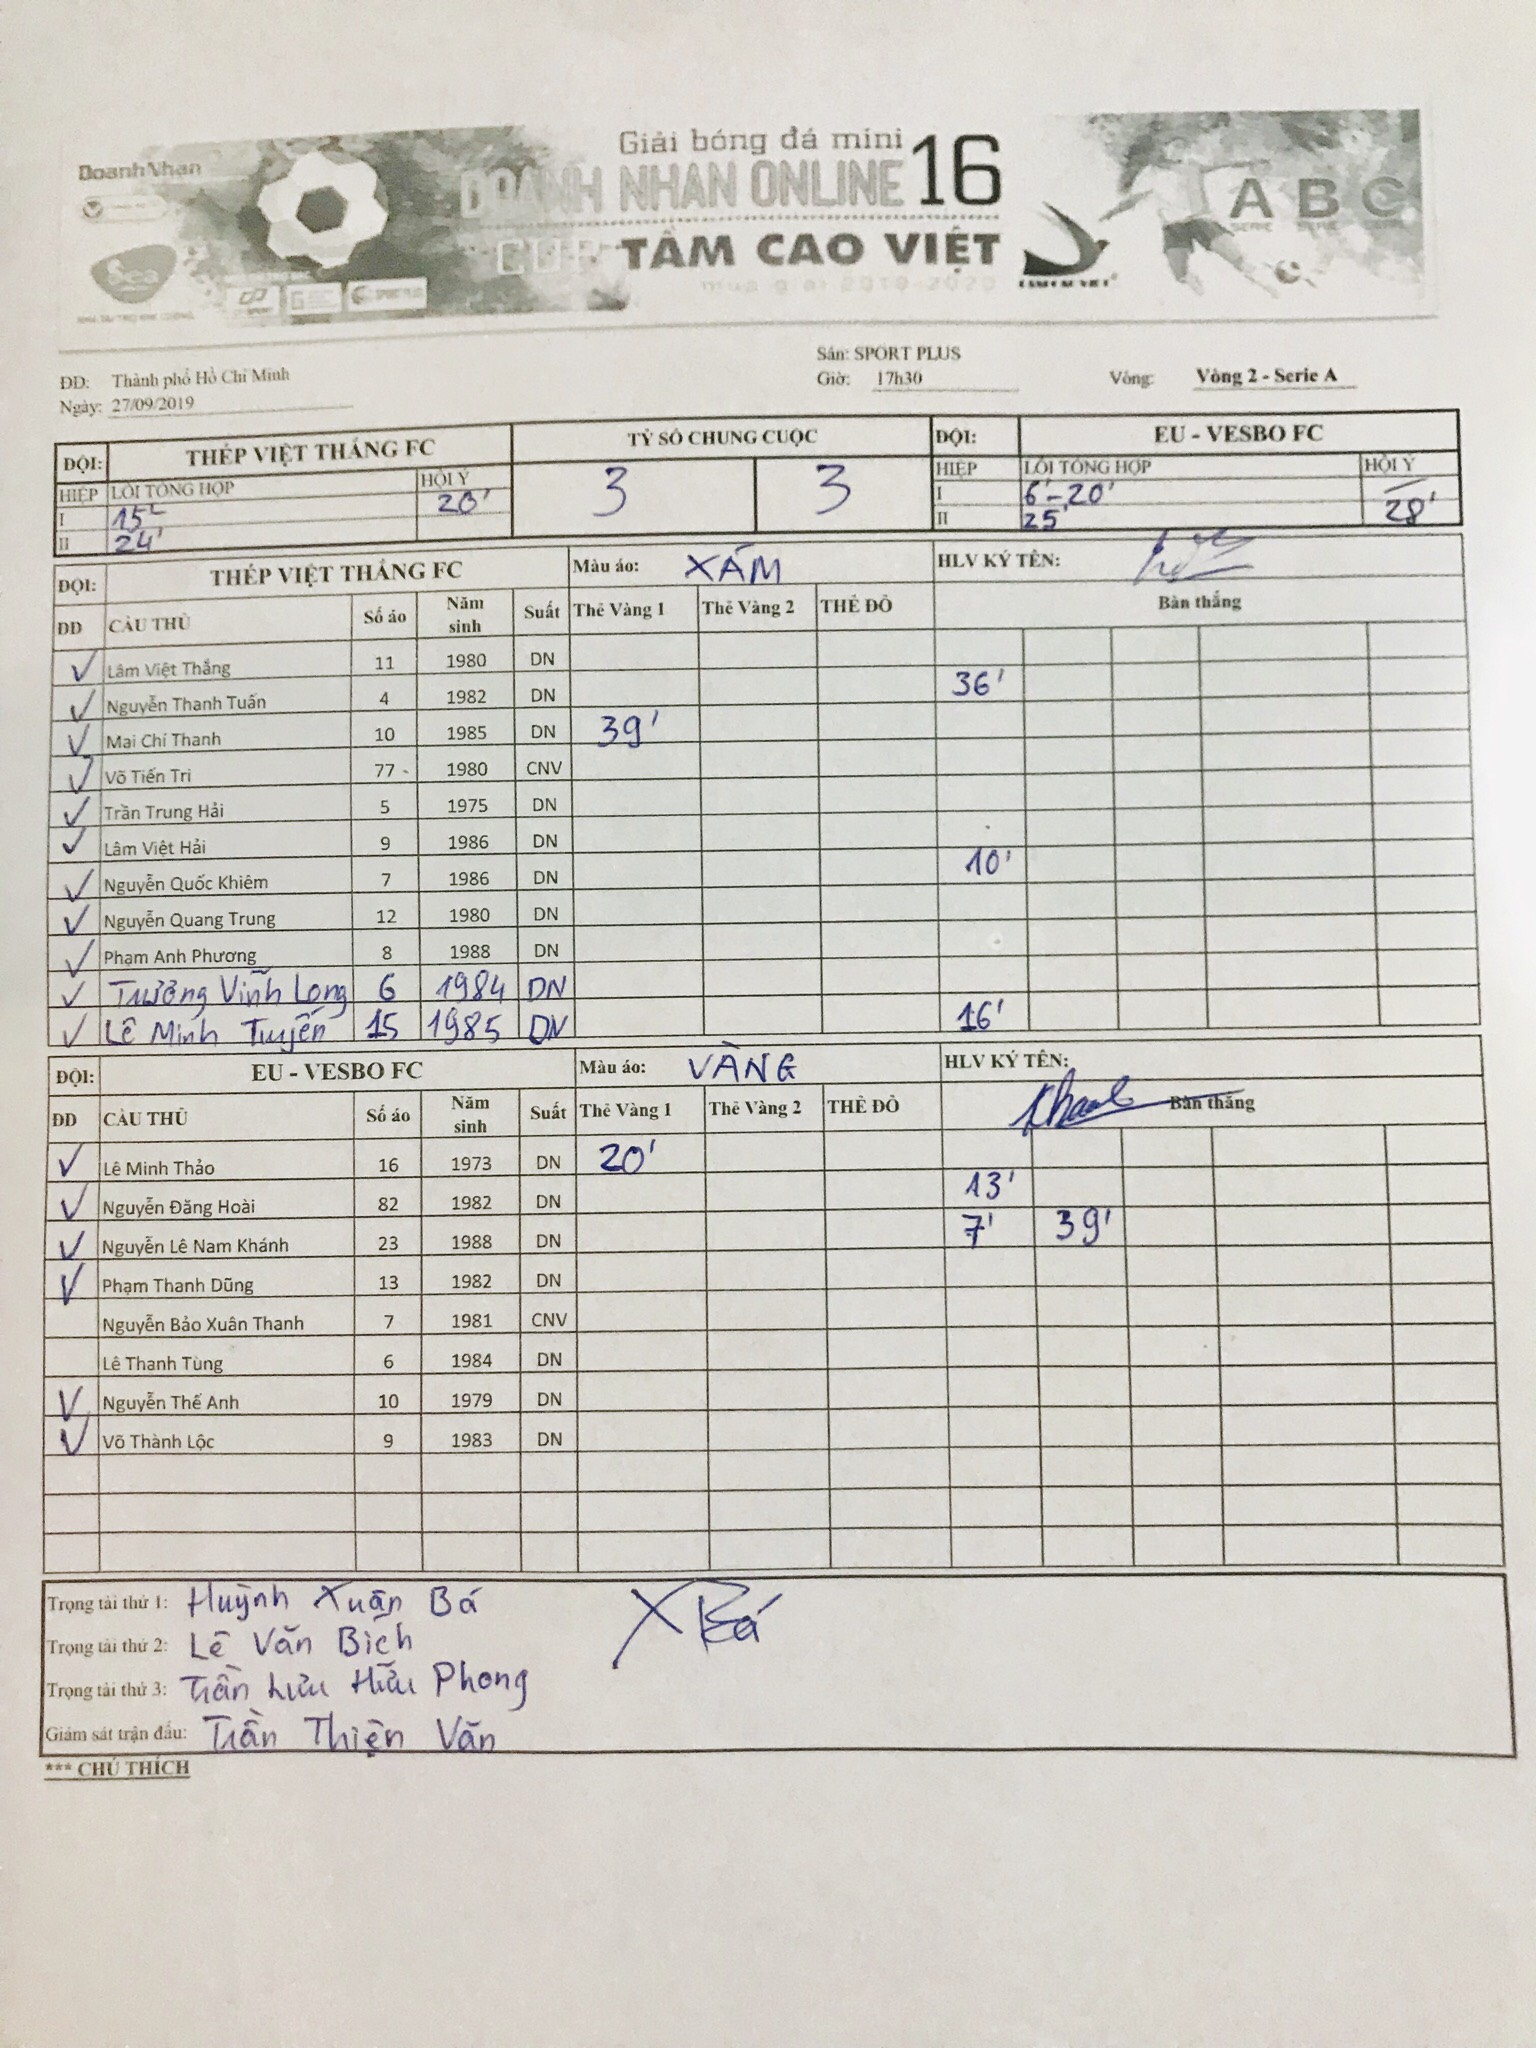 DoanhNhan
Giải bóng đá mini
DOANH NHAN ONLINE 16
CUP TẦM CAO VIỆT
mùa giải 2019-2020
A B C
SERIE SERIE SERIE
SPORT PLUS
TAM CAO VIET
Sân: SPORT PLUS
ĐD: Thành phố Hồ Chí Minh
Giờ: 17h30 Vòng: Vòng 2 - Serie A
Ngày: 27/09/2019
ĐỘI: THÉP VIỆT THẮNG FC TỶ SỐ CHUNG CUỘC ĐỘI: EU - VESBO FC
HIỆP LỖI TỔNG HỢP HỘI Ý 3 3 HIỆP LỖI TỔNG HỢP HỘI Ý
I 15' 20' I 6'-20'
II 24' II 25' 28'
ĐỘI: THÉP VIỆT THẮNG FC Màu áo: XÁM HLV KÝ TÊN:
ĐD CẦU THỦ Số áo Năm sinh Suất Thẻ Vàng 1 Thẻ Vàng 2 THẺ ĐỎ Bàn thắng
✓ Lâm Việt Thắng 11 1980 DN
✓ Nguyễn Thanh Tuấn 4 1982 DN 36'
✓ Mai Chí Thanh 10 1985 DN 39'
✓ Võ Tiến Trí 77 1980 CNV
✓ Trần Trung Hải 5 1975 DN
✓ Lâm Việt Hải 9 1986 DN
✓ Nguyễn Quốc Khiêm 7 1986 DN 10'
✓ Nguyễn Quang Trung 12 1980 DN
✓ Phạm Anh Phương 8 1988 DN
✓ Trương Vĩnh Long 6 1984 DN
✓ Lê Minh Tuyến 15 1985 DN 16'
ĐỘI: EU - VESBO FC Màu áo: VÀNG HLV KÝ TÊN:
Khanh
ĐD CẦU THỦ Số áo Năm sinh Suất Thẻ Vàng 1 Thẻ Vàng 2 THẺ ĐỎ Bàn thắng
✓ Lê Minh Thảo 16 1973 DN 20'
✓ Nguyễn Đăng Hoài 82 1982 DN 13'
✓ Nguyễn Lê Nam Khánh 23 1988 DN 7' 39'
✓ Phạm Thanh Dũng 13 1982 DN
Nguyễn Bảo Xuân Thanh 7 1981 CNV
Lê Thanh Tùng 6 1984 DN
✓ Nguyễn Thế Anh 10 1979 DN
✓ Võ Thành Lộc 9 1983 DN
Trọng tài thứ 1: Huỳnh Xuân Bá XBá
Trọng tài thứ 2: Lê Văn Bích
Trọng tài thứ 3: Trần Lưu Hữu Phong
Giám sát trận đấu: Trần Thiện Văn
*** CHÚ THÍCH